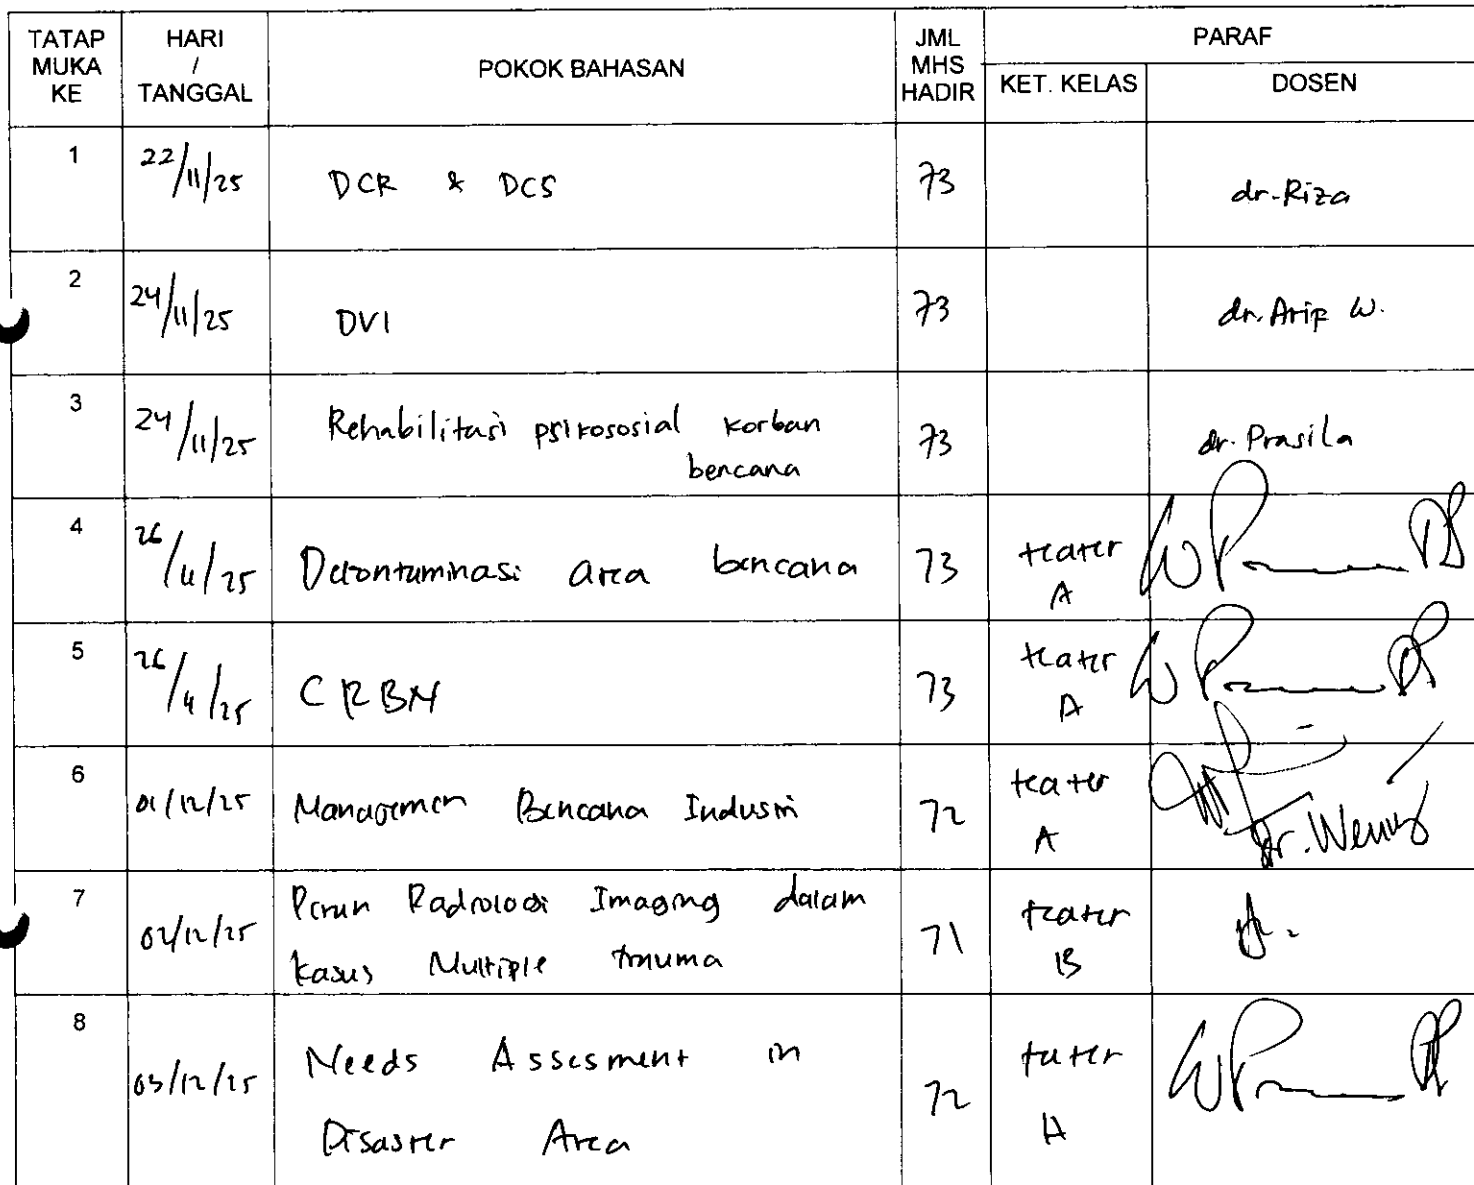 TATAP MUKA KE
HARI / TANGGAL
POKOK BAHASAN
JML MHS HADIR
PARAF
KET. KELAS
DOSEN
1 22/11/25 DCR & DCS 73 dr. Riza
2 24/11/25 DVI 73 dr. Arip W.
3 24/11/25 Rehabilitasi psikososial korban 73 dr. Prasila
bencana
4 26/11/25 Dekontaminasi area bencana 73 teater
A
5 26/11/25 CRBN 73 teater
A
6 01/12/25 Managemen Bencana Industri 72 teater
A Dr. Weny
7 02/12/25 Peran Radiologi Imaging dalam 71 teater
kasus Multiple trauma B
8 03/12/25 Needs Assesment in 72 teater
Disaster Area A